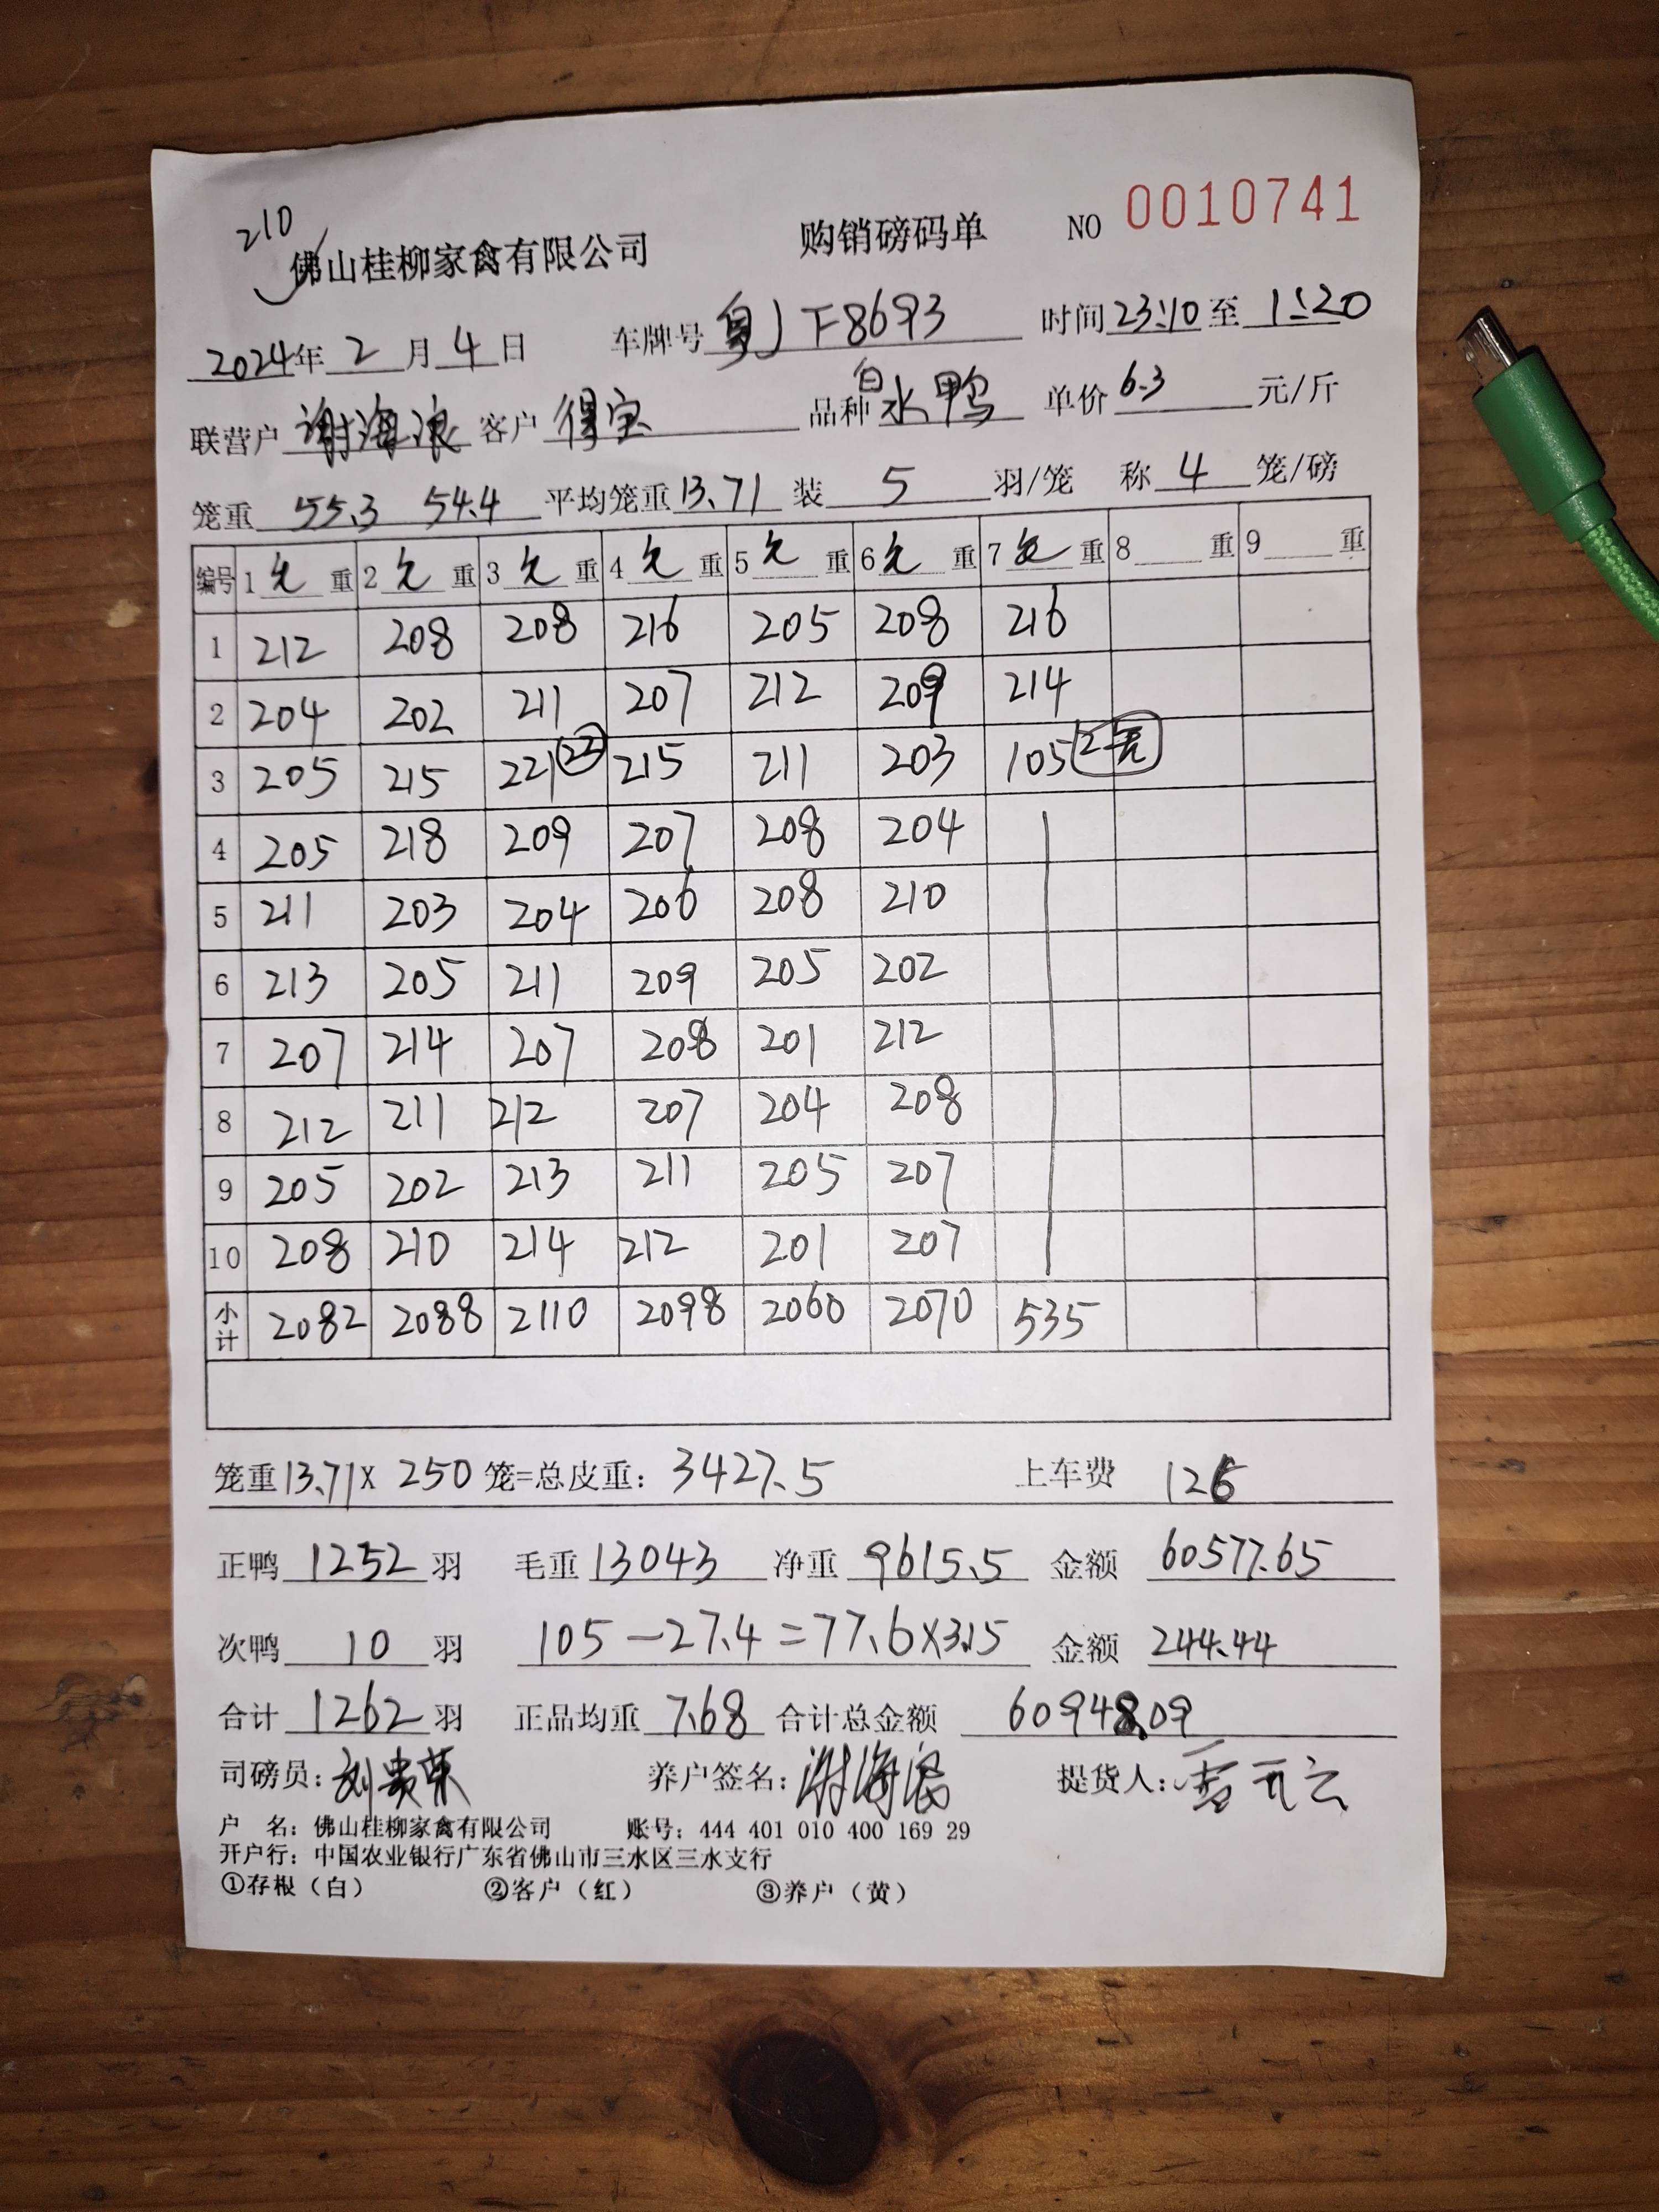 210
佛山桂柳家禽有限公司 购销磅码单 NO 0010741
2024年 2 月 4 日 车牌号 粤J F8693 时间 23:10 至 1:20
联营户 谢海浪 客户 得宝 品种 白水鸭 单价 6.3 元/斤
笼重 55.3 54.4 平均笼重 13.71 装 5 羽/笼 称 4 笼/磅
编号 1 毛 重 2 毛 重 3 毛 重 4 毛 重 5 毛 重 6 毛 重 7 毛 重 8 重 9 重
1 212 208 208 216 205 208 216
2 204 202 211 207 212 209 214
3 205 215 221 22 215 211 203 105 2
4 205 218 209 207 208 204
5 211 203 204 206 208 210
6 213 205 211 209 205 202
7 207 214 207 208 201 212
8 212 211 212 207 204 208
9 205 202 213 211 205 207
10 208 210 214 212 201 207
小计 2082 2088 2110 2098 2060 2070 535
笼重 13.71 x 250 笼=总皮重: 3427.5 上车费 126
正鸭 1252 羽 毛重 13043 净重 9615.5 金额 60577.65
次鸭 10 羽 105-27.4=77.6×3.15 金额 244.44
合计 1262 羽 正品均重 7.68 合计总金额 60948.09
司磅员: 刘贵荣 养户签名: 谢海浪 提货人:
户 名: 佛山桂柳家禽有限公司 账号: 444 401 010 400 169 29
开户行: 中国农业银行广东省佛山市三水区三水支行
①存根(白) ②客户(红) ③养户(黄)